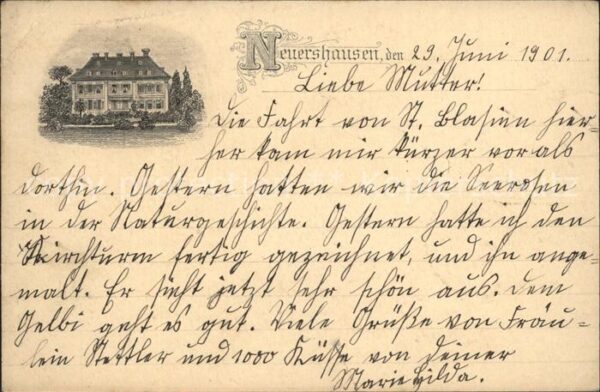 Neuershausen, den 29. Juni 1901.
Liebe Mutter!
Die Fahrt von St. Blasien hier-
her kam mir kürzer vor als
dorthin. Gestern hatten wir die Seerosen
in der Naturgeschichte. Gestern hatte ich den
Kirchturm fertig gezeichnet, und ihn ange-
malt. Er sieht jetzt sehr schön aus. Dem
Gelbi geht es gut. Viele Grüße von Fräu-
lein Stettler und 1000 Küsse von deiner
Marie Hilda.